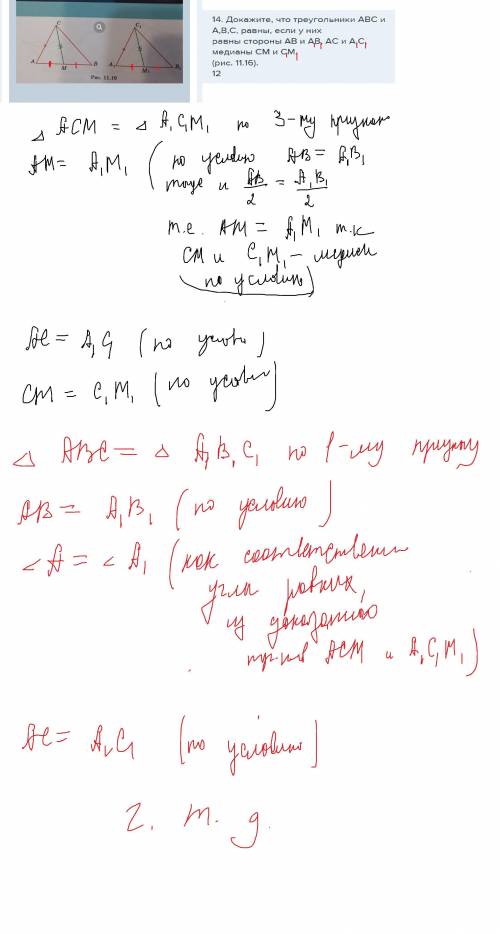 C C₁
A M B A₁ M₁ B₁
Рис. 11.16
14. Докажите, что треугольники ABC и
A,B,C, равны, если у них
равны стороны AB и AB₁ AC и A₁C₁
медианы CM и CM₁
(рис. 11.16).
12
△ ACM = △ A₁C₁M₁ по 3-му признак
AM = A₁M₁ (по условию AB = A₁B₁
тогда и AB/2 = A₁B₁/2
т.е. AM = A₁M₁ т.к
CM и C₁M₁ – медиан
по условию)
AC = A₁C₁ (по услови)
CM = C₁M₁ (по услови)
△ ABC = △ A₁B₁C₁ по 1-му признку
AB = A₁B₁ (по условию)
∠A = ∠A₁ (как соответственн
углы равных,
из доказанного
тр-ков ACM и A₁C₁M₁)
AC = A₁C₁ (по условию)
Ч. т. д.